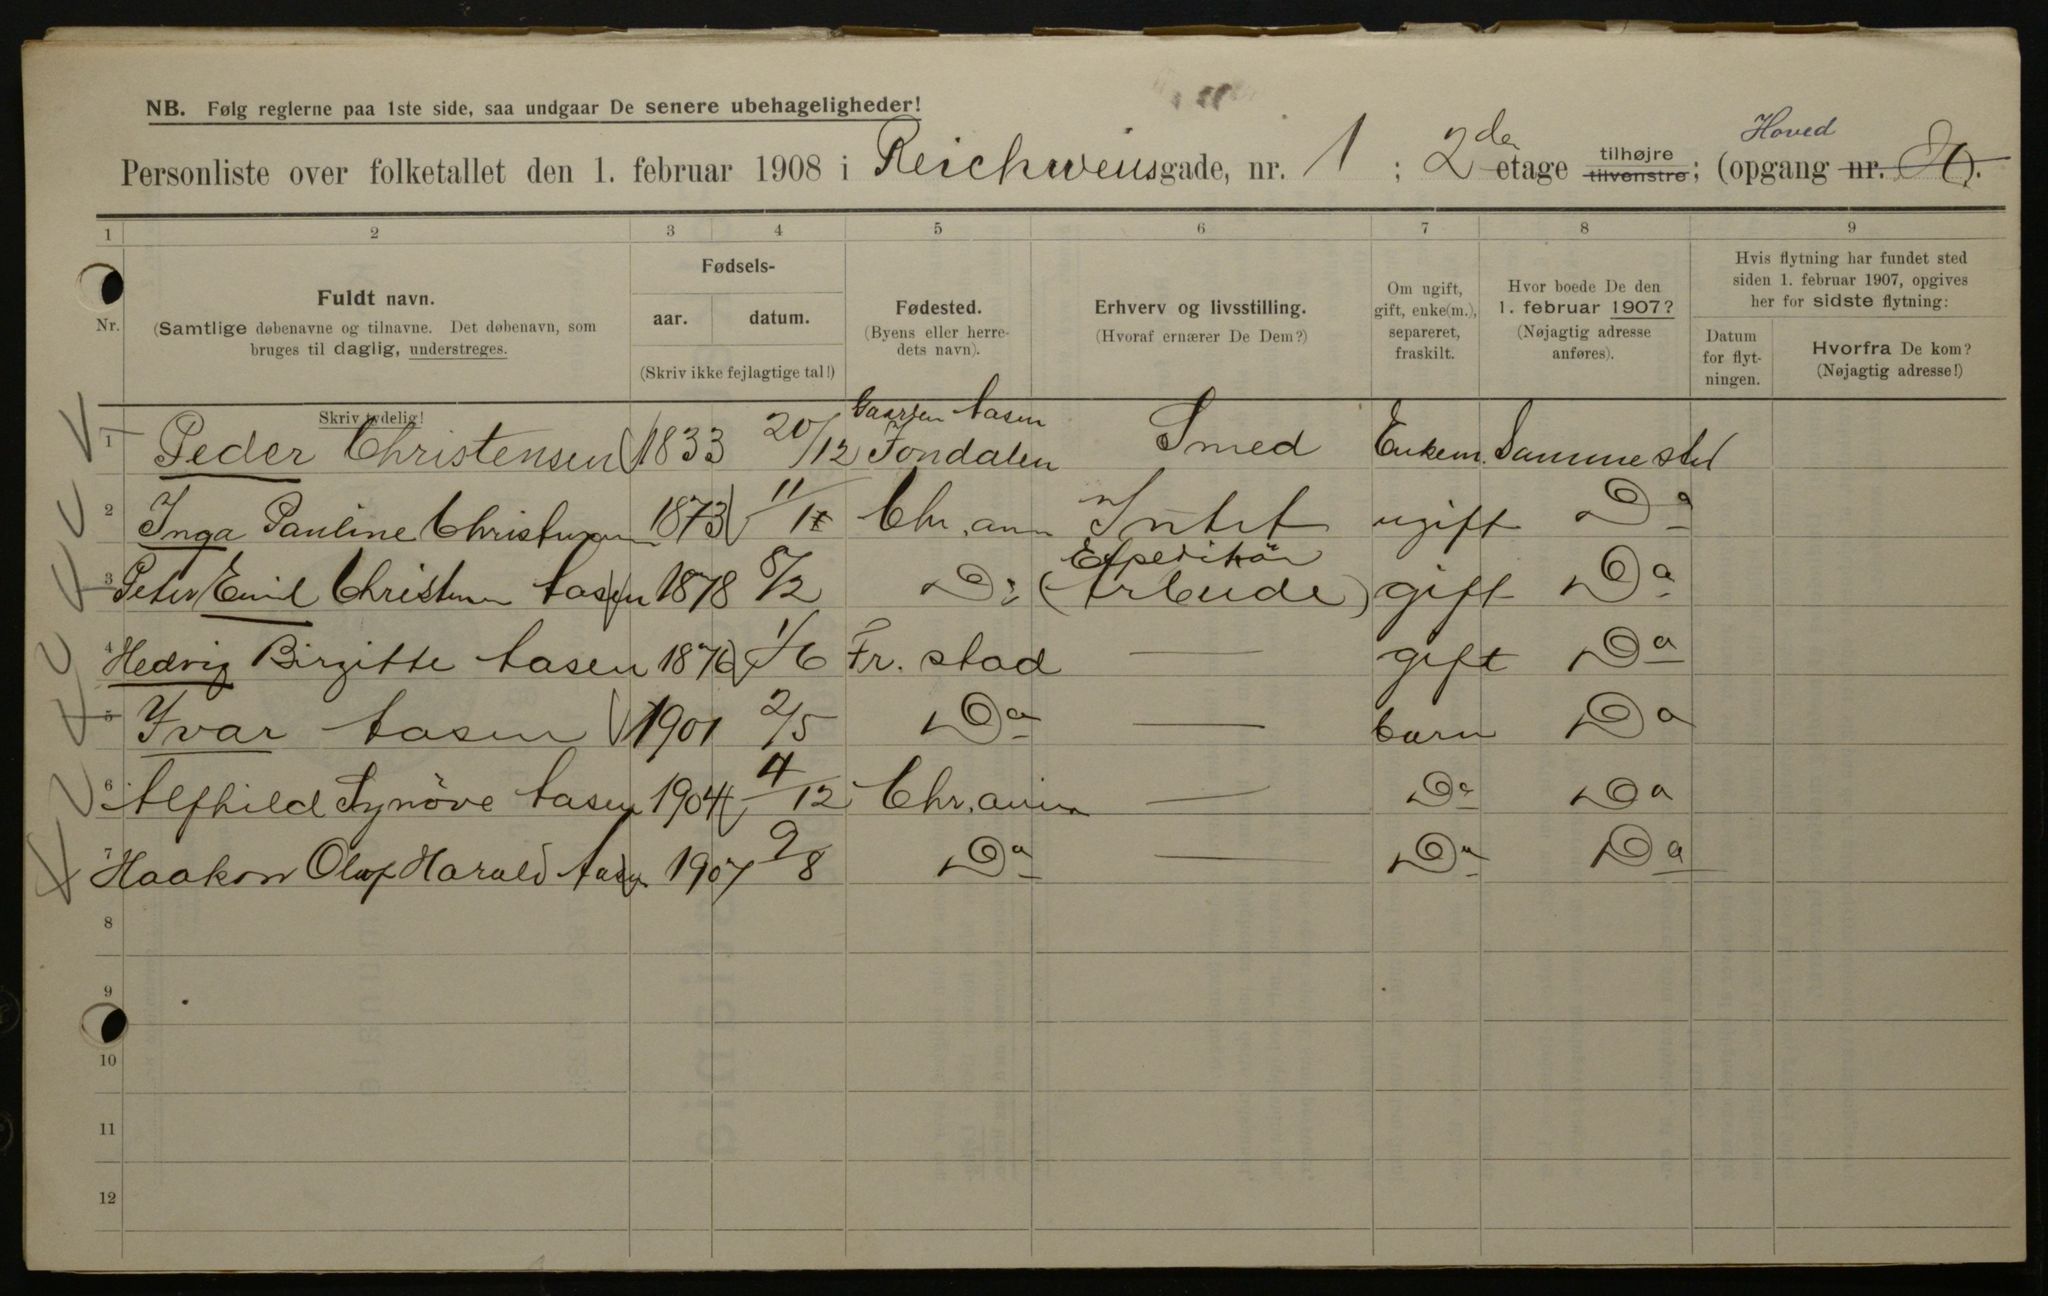 NB. Følg reglerne paa 1ste side, saa undgaar De senere ubehageligheder!
Personliste over folketallet den 1. februar 1908 i Reichweinsgade, nr. 1 ; 2de etage tilhøjre tilvenstre; (opgang nr. H). Hoved
1 2 3 4 5 6 7 8 9
Nr.
Fuldt navn.
(Samtlige døbenavne og tilnavne. Det døbenavn, som
bruges til daglig, understreges.
Skriv tydelig!
Fødsels-
aar. datum.
(Skriv ikke fejlagtige tal!)
Fødested.
(Byens eller herre-
dets navn).
Erhverv og livsstilling.
(Hvoraf ernærer De Dem?)
Om ugift,
gift, enke(m.),
separeret,
fraskilt.
Hvor boede De den
1. februar 1907?
(Nøjagtig adresse
anføres).
Hvis flytning har fundet sted
siden 1. februar 1907, opgives
her for sidste flytning:
Datum
for flyt-
ningen.
Hvorfra De kom?
(Nøjagtig adresse!)
Gaarden Aasen
1 Peder Christensen 1833 20/12 Fondalen Smed Enkem. Samme sted
2 Inga Pauline Christensen 1873 11/1 Chr.ania Intet ugift Do
Expeditør
3 Peter Emil Christensen Aasen 1878 8/2 Do (Arbeide) gift Do
4 Hedvig Birgitte Aasen 1876 1/6 Fr. stad — gift Do
5 Yvar Aasen 1901 2/5 Do — barn Do
6 Alfhild Synöve Aasen 1904 4/12 Chr.ania — Do Do
7 Haakon Olaf Harald Aasen 1907 9/8 Do — Do Do
8
9
10
11
12